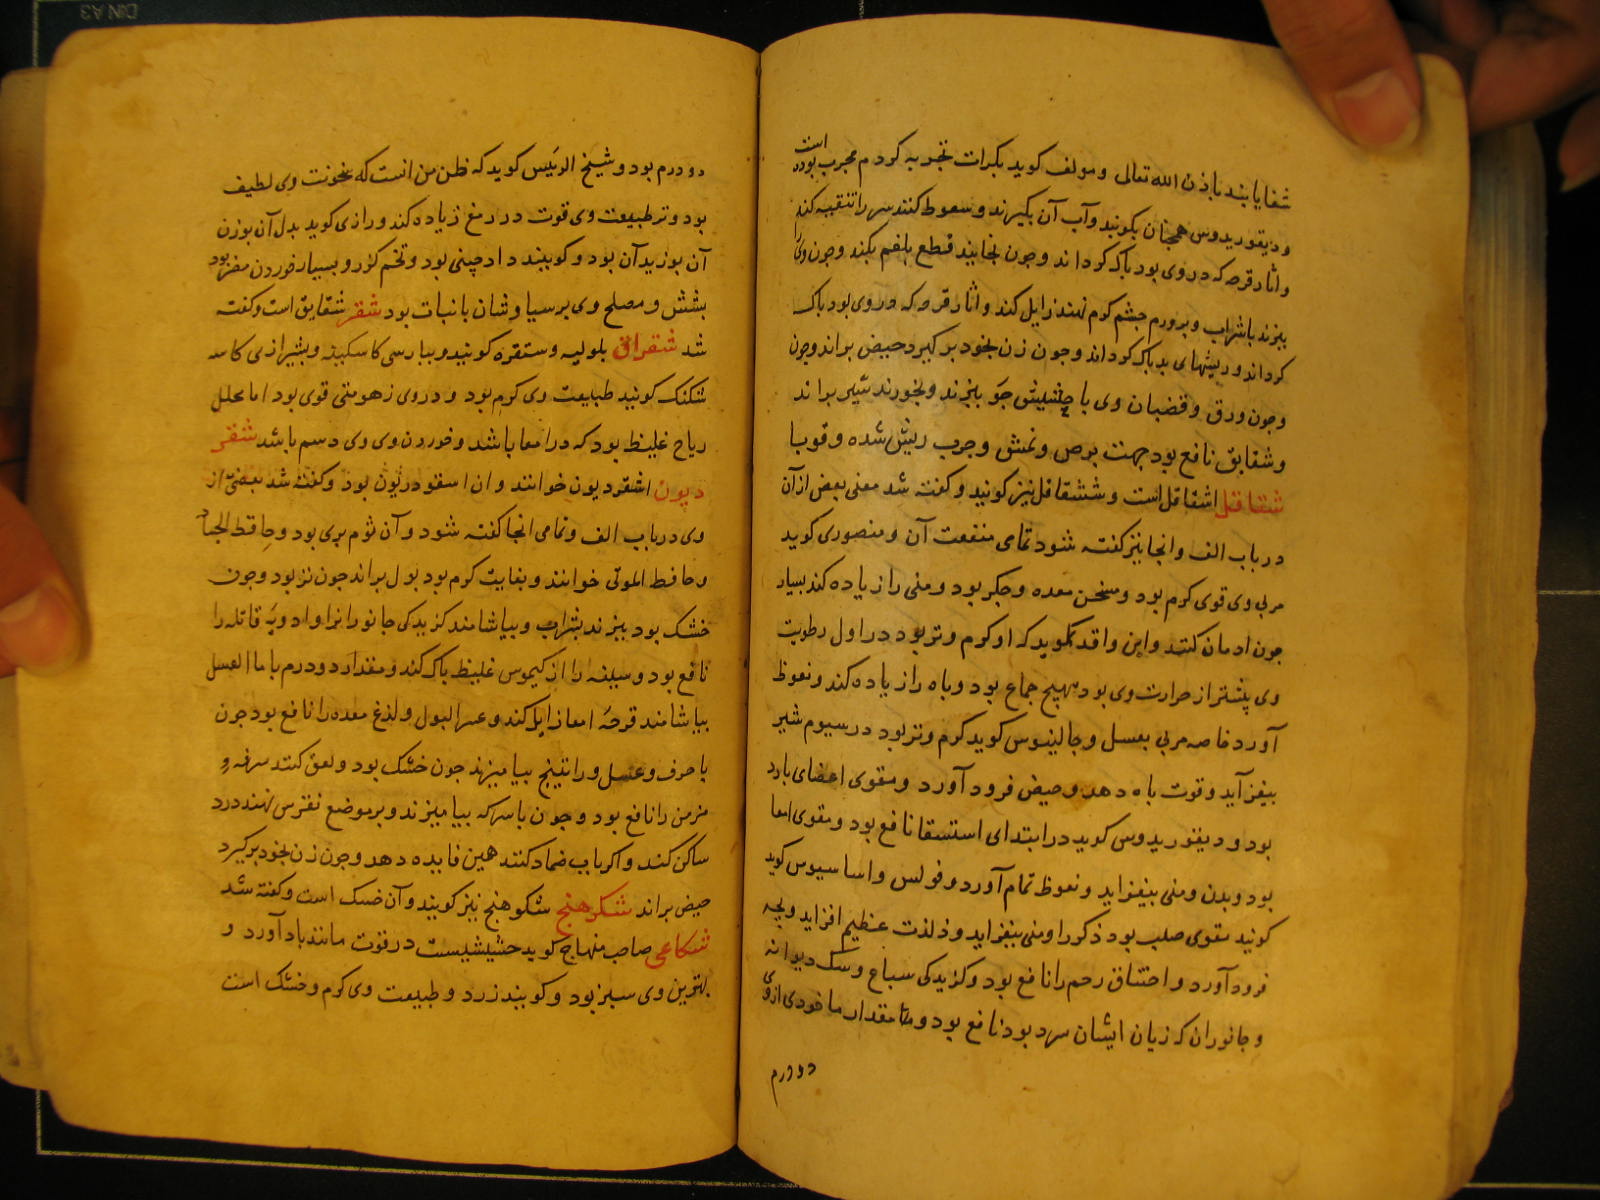 شفا یابند باذن الله تعالی و مولف کوید بکرات تجربه کردم مجرب بوده است
و دیقوریدوس همچنان بکوبند و آب آن بکیرند و سعوط کنند سر را تنقیه کند
و اثار قرحه که در روی بود پاک کرداند و جون بخایند قطع بلغم بکند و جون وی را
بپزند باشراب و بر ورم جشم کرم نهند زایل کند و اثار قرحه که در روی بود پاک
کرداند و ریشهای بد پاک کرداند و جون زن بخود بر کیرد حیض براند و جون
و جون ورق و قضبان وی با حشیش جو بپزند و بخورند شیر براند
و شقایق نافع بود جهت برص و نمش و جرب ریش شده و قوبا
شقاقل اشقاقل است و ششقاقل نیز کویند و کفته شد معنی بعض از آن
در باب الف و انجا نیز کفته شود تمامی منفعت آن و منصوری کوید
مربی وی قوی کرم بود و مسخن معده و جکر بود و منی را زیاده کند بسیار
جون ادمان کنند و ابن واقد کوید که او کرم و تر بود در اول رطوبت
وی پیشتر از حرارت وی بود مهیج جماع بود و باه را زیاده کند و نعوظ
آورد خاصه مربی بعسل و جالینوس کوید کرم و تر بود در سیوم شیر
بیفزاید و قوت باه دهد و حیض فرود آورد و مقوی اعضای بارد
بود و دیقوریدوس کوید در ابتدای استسقا نافع بود و مقوی امعا
بود و بدن و منی بیفزاید و نعوظ تمام آورد و فولس و اساسیوس کوید
کویند مقوی صلب بود ذکر را و منی بیفزاید و لذت عظیم افزاید و بچه
فرود آورد و اختناق رحم را نافع بود و کزیدکی سباع و سک دیوانه
و جانوران که زیان ایشان سرد بود نافع بود و مقدار ماخودی از وی
دو درم
دو درم بود و شیخ الرئیس کوید که ظن من انست که سخونت وی لطیف
بود و تر طبیعت وی قوت در دمغ زیاده کند و رازی کوید بدل آن بوزن
آن بوزیدان بود و کویند دارچینی بود و تخم کزر و بسیار خوردن مضر بود
بشش و مصلح وی برسیاوشان بانبات بود شقر شقایق است و کفته
شد شقراق بلولیه و ستقره کویند و بپارسی کاسکینه و بشیرازی کاسه
شکنک کویند طبیعت وی کرم بود و در وی زهومتی قوی بود اما محلل
ریاح غلیظ بود که در امعا باشد و خوردن وی وی دسم باشد شقر
دیون اشقردیون خوانند و ان اسقوردیون بود و کفته شد بعضی از
وی در باب الف و تمامی انجا کفته شود و آن ثوم بری بود و حافظ الاجساد
و حافظ الموتی خوانند و بغایت کرم بود بول براند جون تر بود و جون
خشک بود بپزند بشراب و بیاشامند کزیدکی جانوران را و ادویه قاتله را
نافع بود و سینه را از کیموس غلیظ پاک کند و مقدار دو درم با ما العسل
بیاشامند قرحه امعا زایل کند و عسر البول و لذغ معده را نافع بود جون
با حرف و عسل و راتینج بیامیزند جون خشک بود و لعق کنند سرفه و
مزمن را نافع بود و جون با سرکه بیامیزند و بر موضع نقرس نهند درد
ساکن کند و اکر باب ضماد کنند همین فایده دهد و جون زن بخود برکیرد
حیض براند شکرهنج شکوهنج نیز کویند و آن خسک است و کفته شد
شکاعی صاحب منهاج کوید حشیشیست در قوت مانند بادآورد و
بهترین وی سبز بود و کویند زرد و طبیعت وی کرم و خشک است